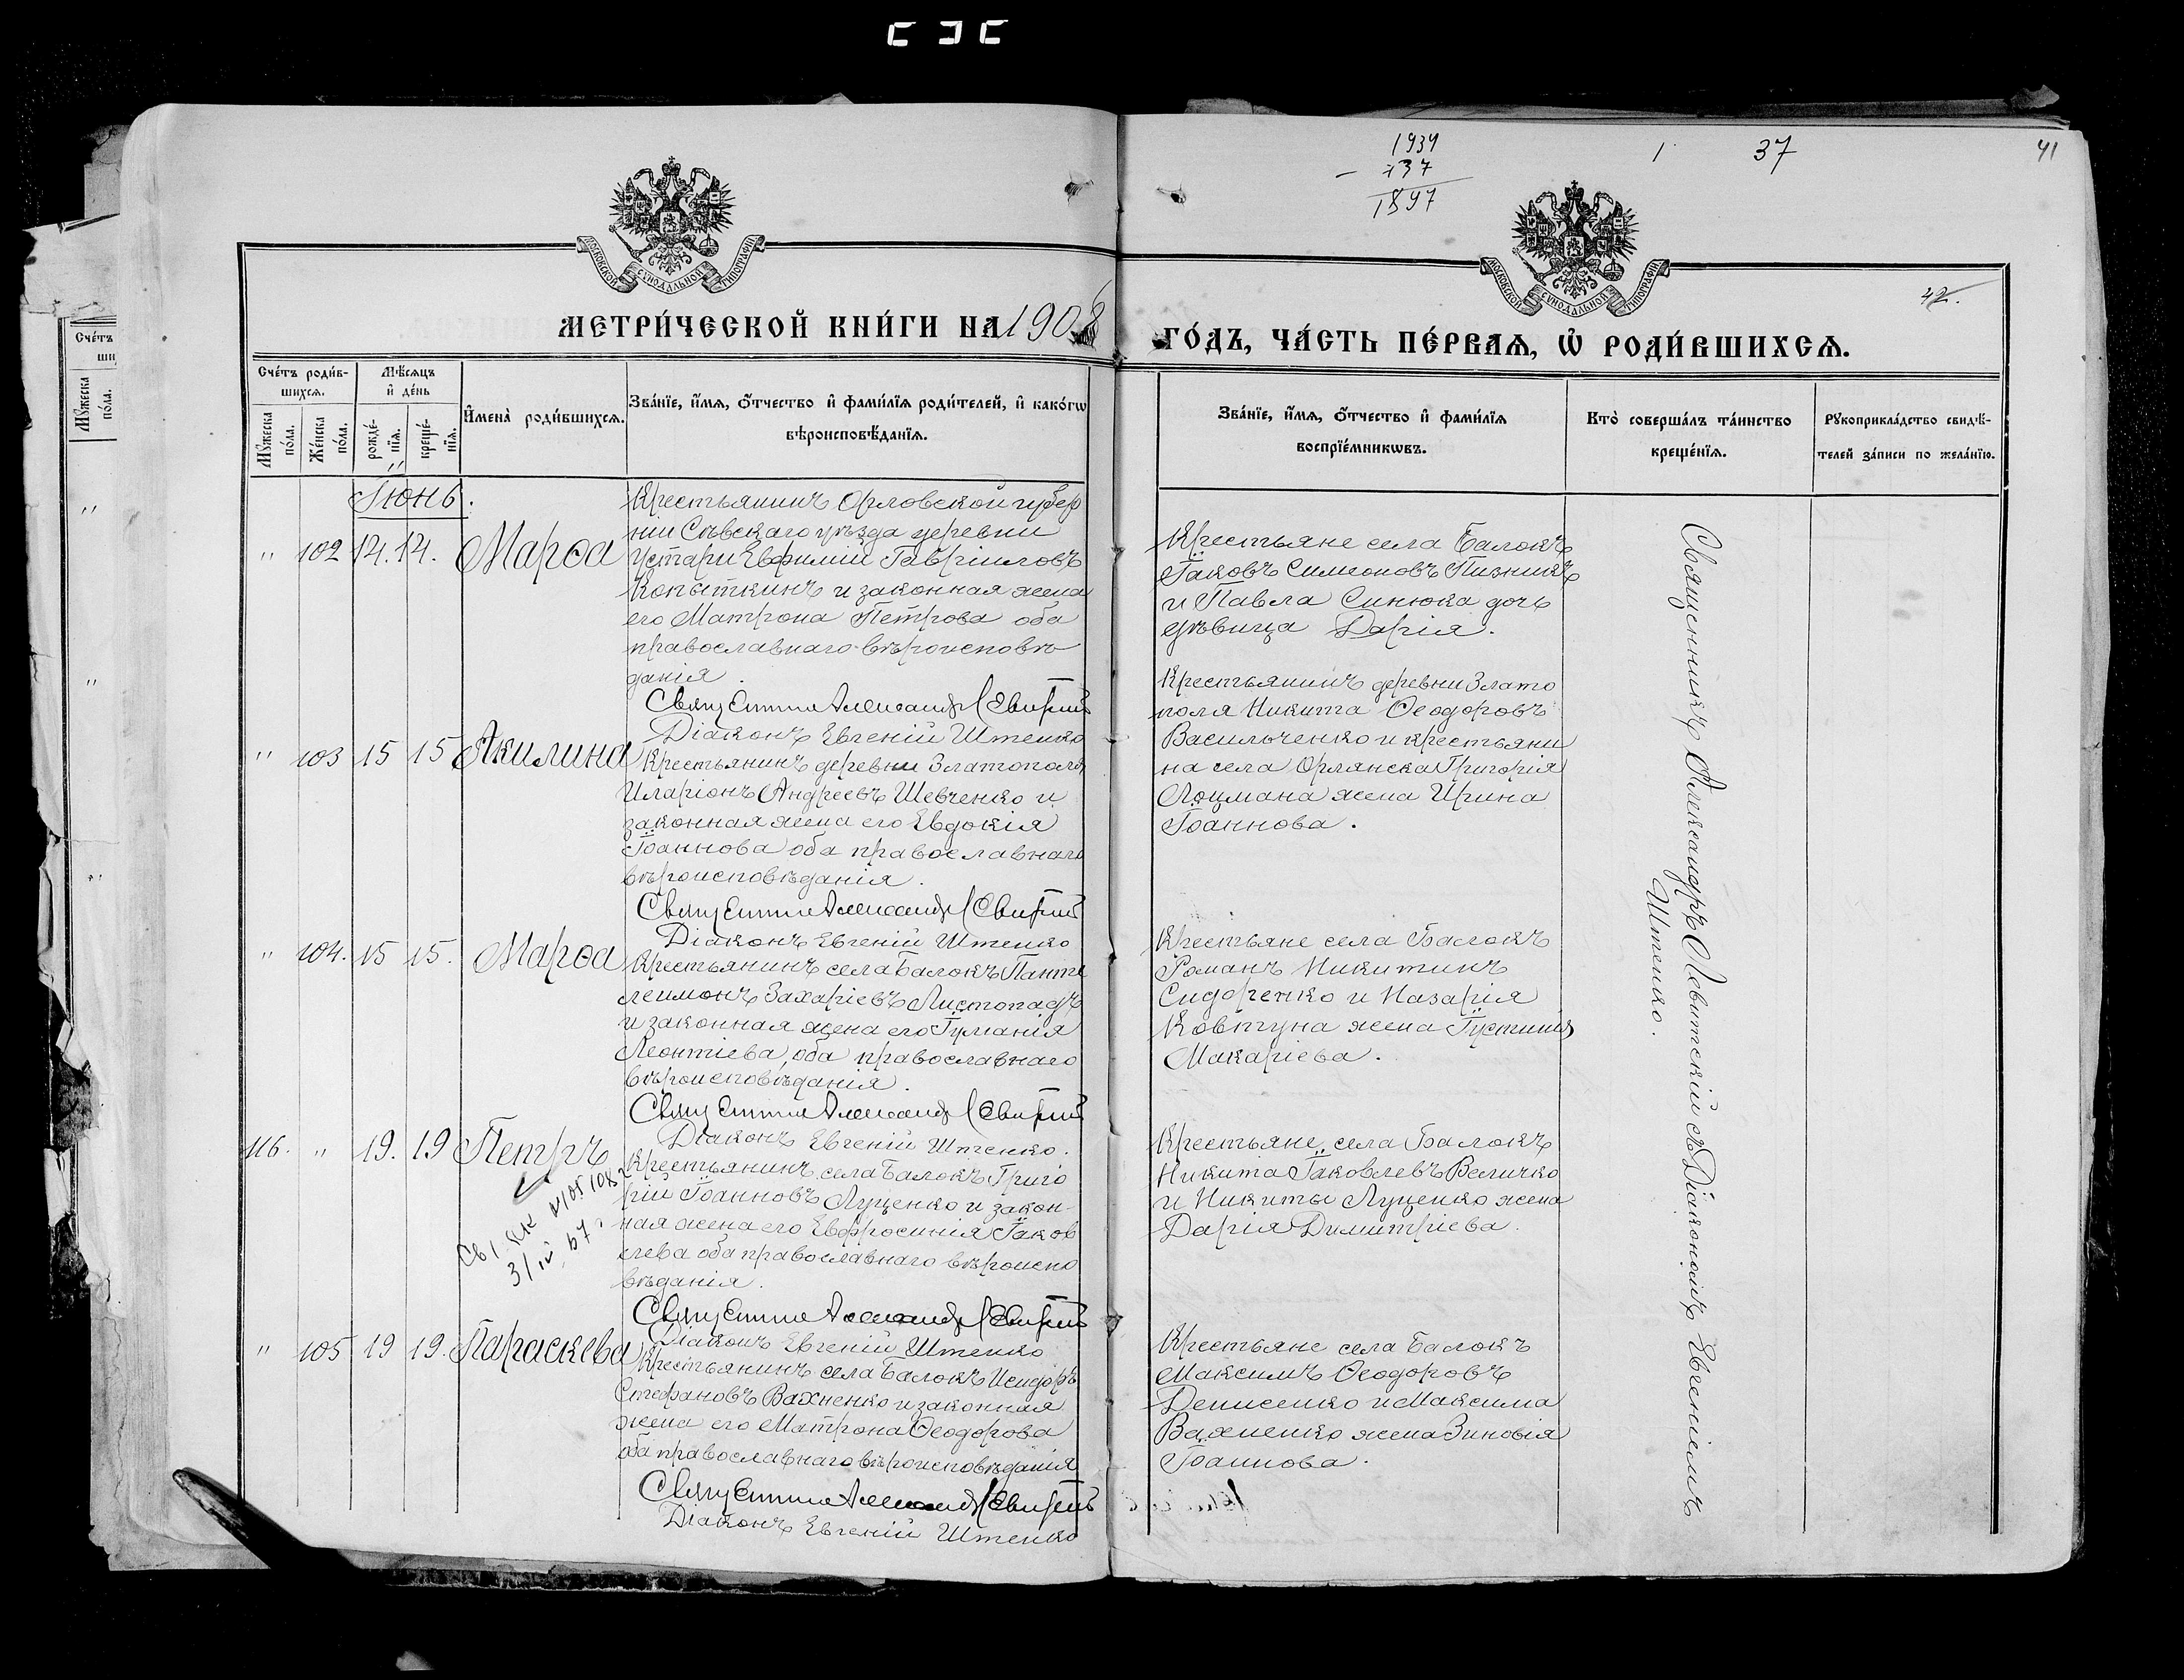 1934
- 137
1897
1
37
41
42.
МОСКОВСКОЙ СѴНОДАЛЬНОЙ ТИПОГРАФІИ
МОСКОВСКОЙ СѴНОДАЛЬНОЙ ТИПОГРАФІИ
МЕТРИ́ЧЕСКОЙ КНИ́ГИ НА 1908
ГО́ДЪ, ЧА́СТЬ ПЕ́РВАѦ, Ѡ҆ РОДИ́ВШИХСѦ.
Сче́тъ роди́в-
шихсѧ.
Мꙋ́жеска
по́ла.
Же́нска
по́ла.
Мѣ́сѧцъ
и҆ де́нь
рожде́-
нїѧ.
креще́-
нїѧ.
И҆мена̀ роди́вшихсѧ.
Зва́нїе, и҆́мѧ, ѻ҆́тчество и҆ фами́лїѧ роди́телей, и҆ како́гѡ
вѣроисповѣ́данїѧ.
Зва́нїе, и҆́мѧ, ѻ҆́тчество и҆ фами́лїѧ
воспрїе́мникѡвъ.
Кто̀ соверша́лъ та́инство
креще́нїѧ.
Рꙋкоприкла́дство свидѣ́-
телей за́писи по жела́нїю.
Іюнь.
" 102 14. 14. Марѳа
Крестьянинъ Орловской губер
ніи Сѣвскаго уѣзда деревни
Устари Евфимій Гавріиловъ
Копыткинъ и законная жена
его Матрона Петрова оба
православнаго вѣроисповѣ
данія.
Священникъ Александръ Левитскій
Діаконъ Евгеній Штепко
Крестьяне села Балокъ
Іаковъ Симеоновъ Пизникъ
и Павла Синюка дочь
дѣвица Дарія.
" 103 15 15 Акилина
Крестьянинъ деревни Златополя
Иларіонъ Андреевъ Шевченко и
законная жена его Евдокія
Іоаннова оба православнаго
вѣроисповѣданія.
Священникъ Александръ Левитскій
Діаконъ Евгеній Штепко
Крестьянинъ деревни Злато
поля Никита Ѳеодоровъ
Васильченко и крестьяни
на села Орлянска Григорія
Лоцмана жена Ирина
Іоаннова.
" 104. 15 15. Марѳа
Крестьянинъ села Балокъ Панте
леимонъ Захаріевъ Листопадъ
и законная жена его Іуліанія
Леонтіева, оба православнаго
вѣроисповѣданія.
Священникъ Александръ Левитскій
Діаконъ Евгеній Штепко.
Крестьяне села Балокъ
Романъ Никитинъ
Сидоренко и Назарія
Ковтуна жена Іустинія
Макаріева.
116. " 19. 19 Петръ
Крестьянинъ села Балокъ Григо
рій Іоанновъ Луценко и закон-
ная жена его Евфросинія Іаков
лева оба православнаго вѣроиспо
вѣданія.
Священникъ Александръ Левитскій
Діаконъ Евгеній Штепко
Крестьяне села Балокъ
Никита Іаковлевъ Величко
и Никиты Луценко жена
Дарія Димитріева.
" 105 19 19. Параскева
Крестьянинъ села Балокъ Исидоръ
Стефановъ Вахненко и законная
жена его Матрона Ѳеодорова
оба православнаго вѣроисповѣданія
Священникъ Александръ Левитскій
Діаконъ Евгеній Штепко
Крестьяне села Балокъ
Максимъ Ѳеодоровъ
Денисенко и Максима
Вахненко жена Зиновія
Іоаннова.
Священникъ Александръ Левитскій съ Діакономъ Евгеніемъ
Штепко.
Сче́тъ
Мꙋ́жеска
по́ла.